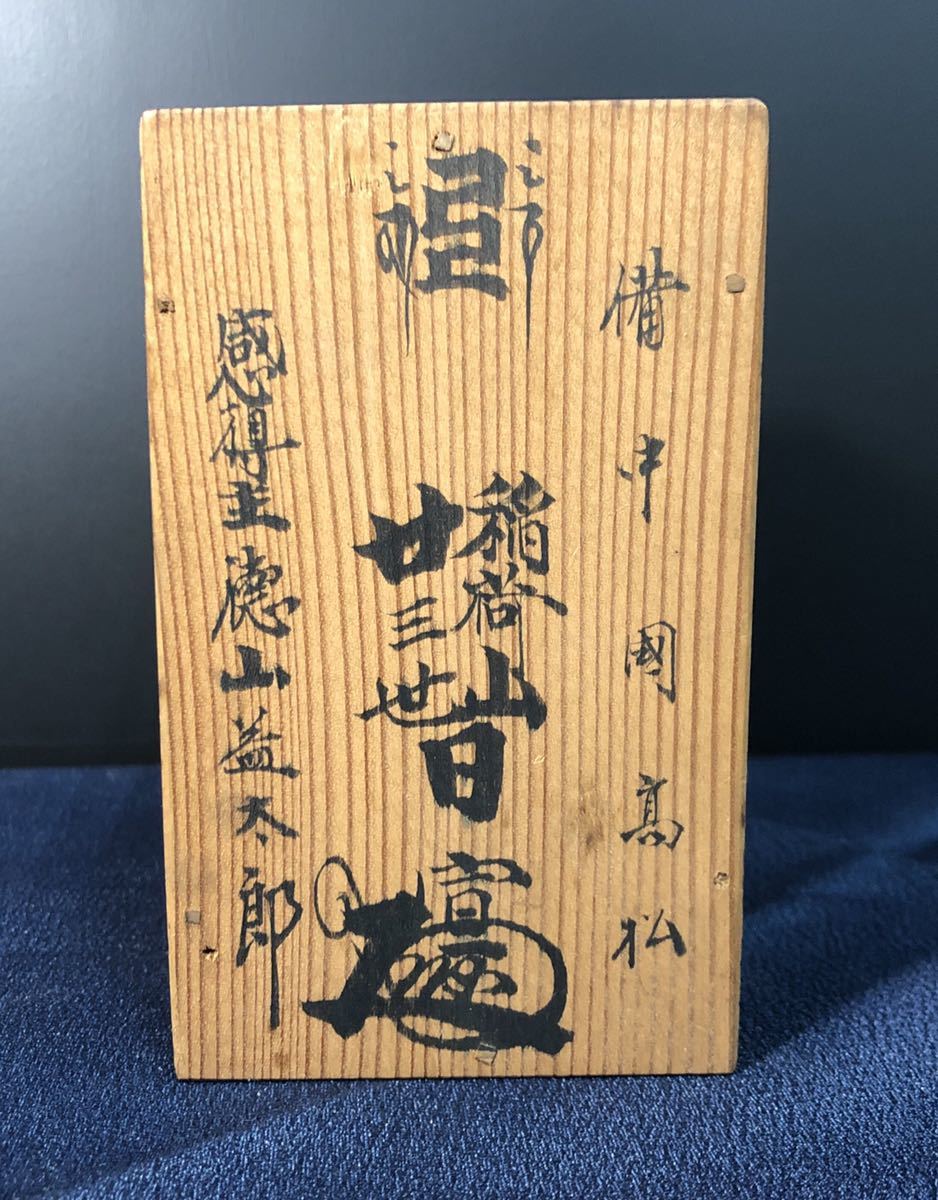 備中國高松
稲荷山日宣
廿三世
感得主徳山益太郎